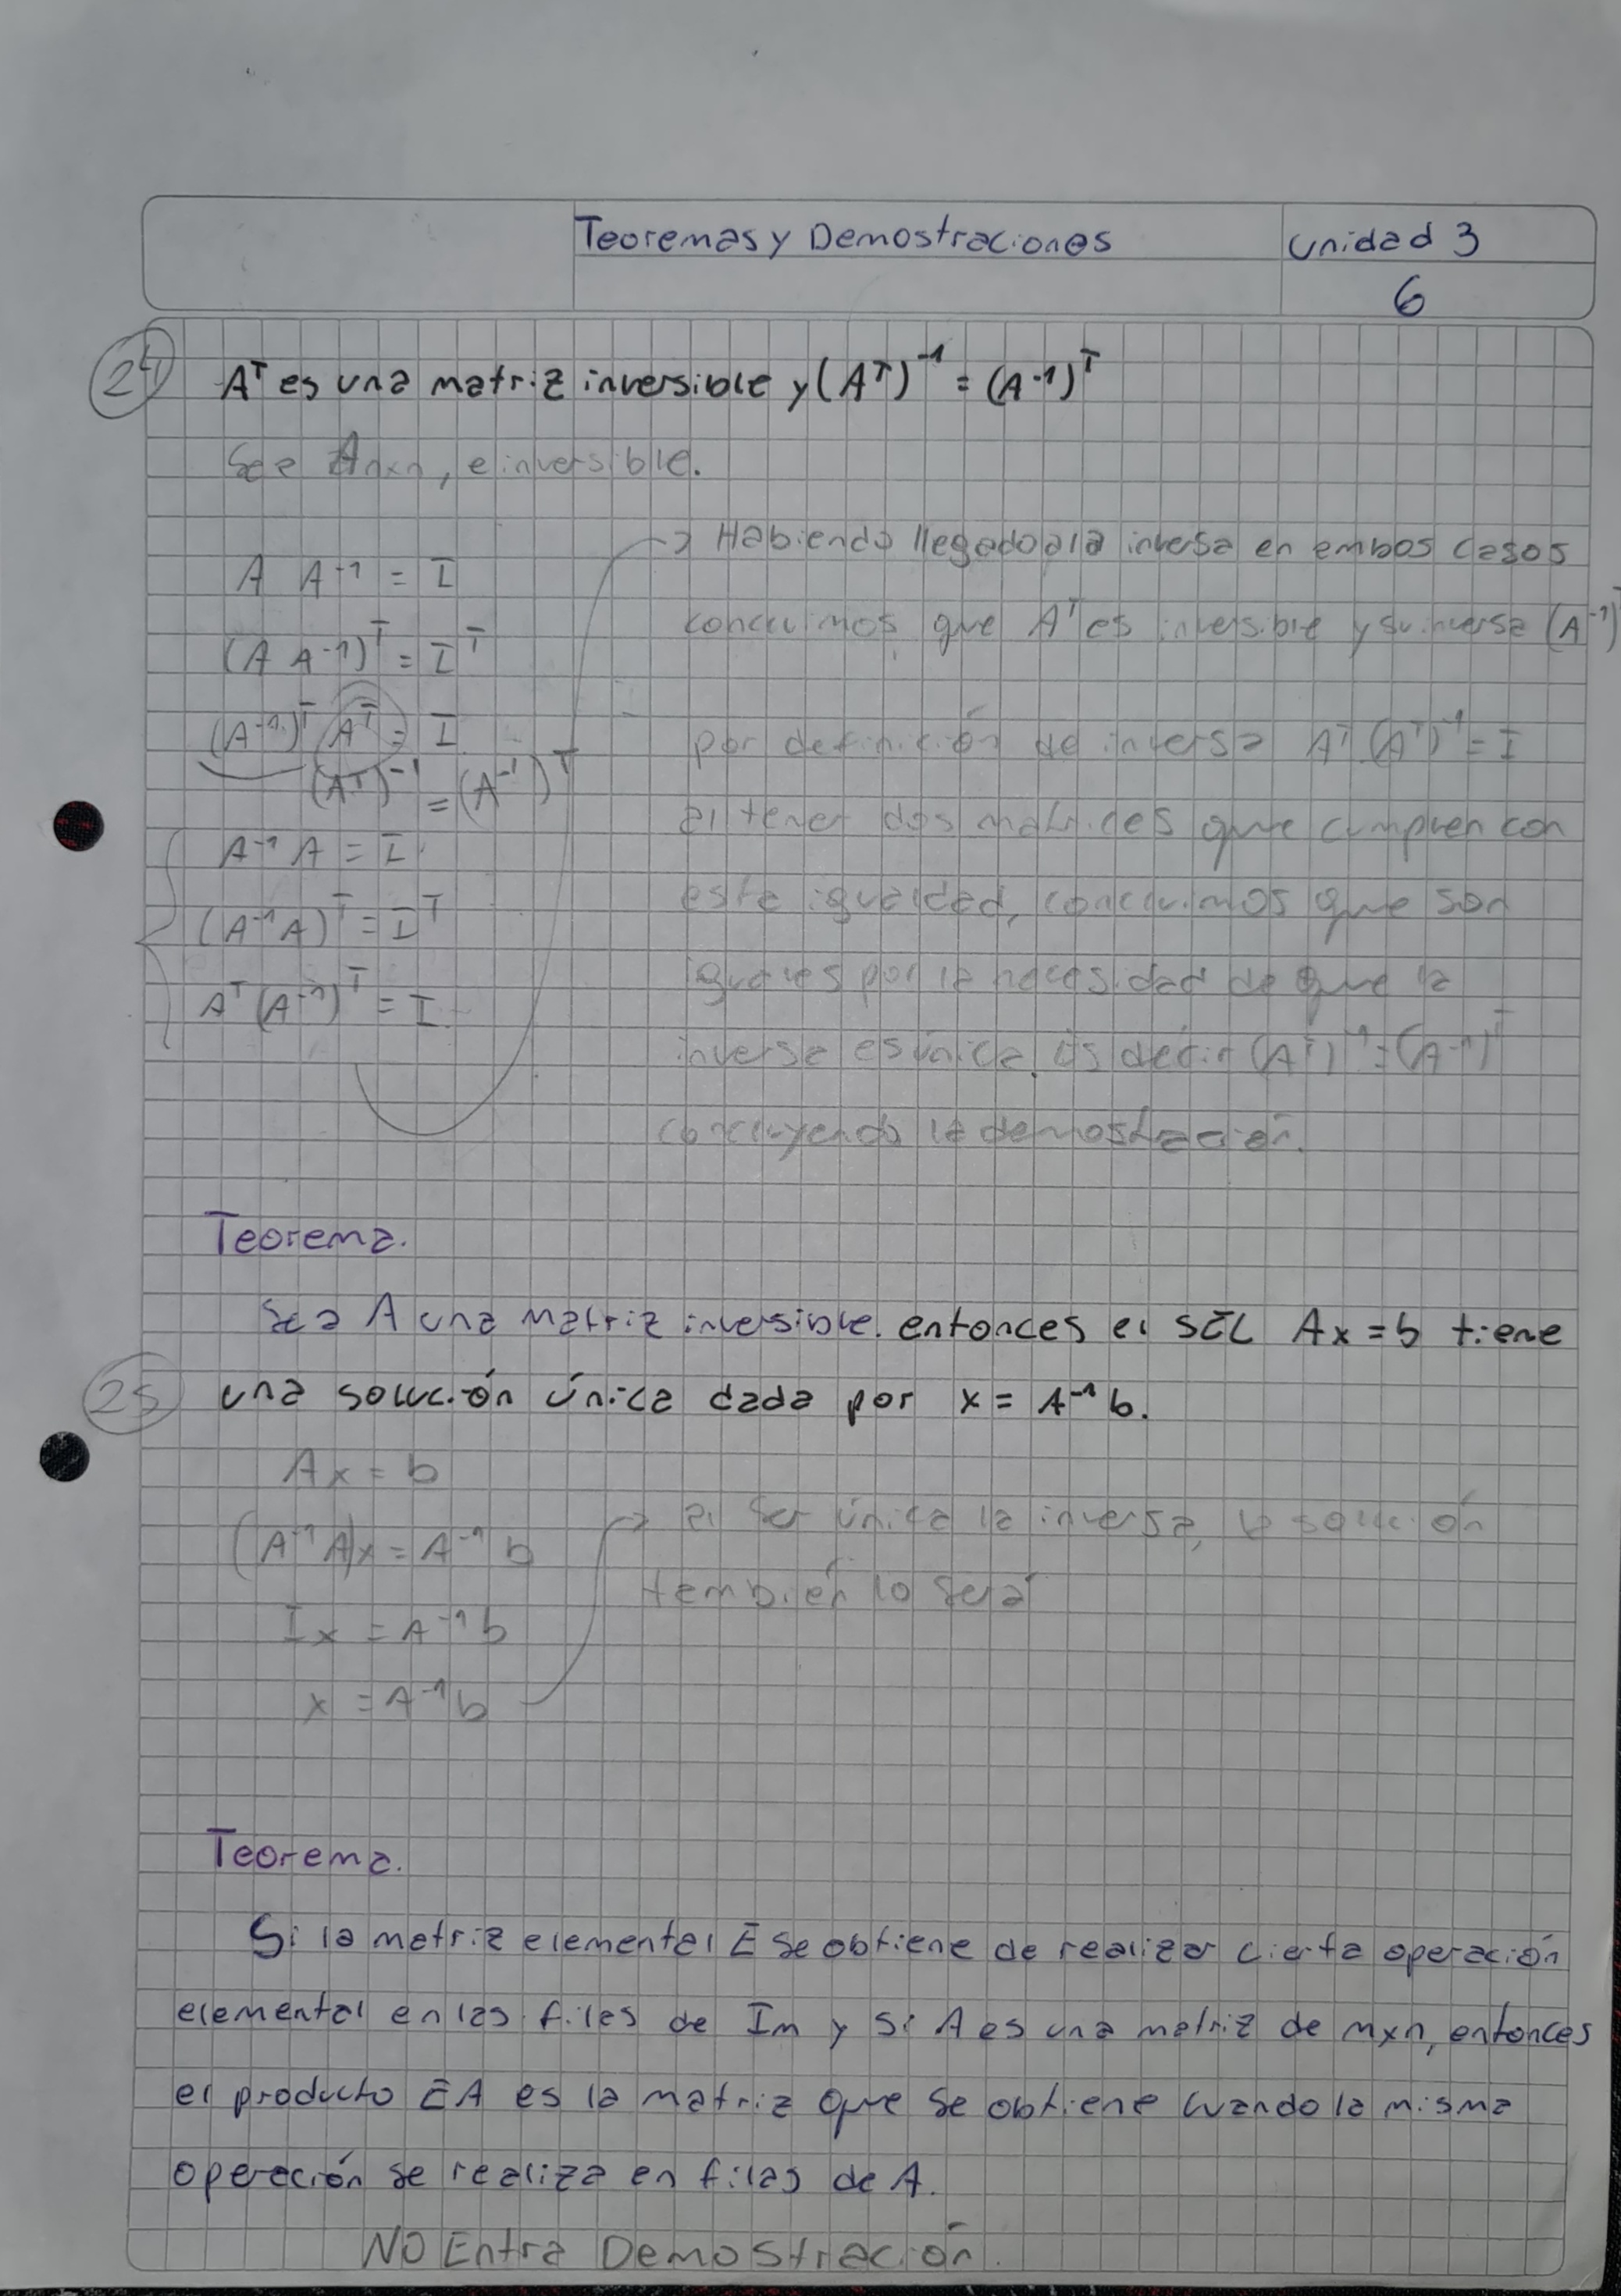 Teoremas y Demostraciones
Unidad 3
6
24
Aᵀ es una matriz inversible y (Aᵀ)⁻¹ = (A⁻¹)ᵀ
Sea Anxn, e inversible.
A A⁻¹ = I
(A A⁻¹)ᵀ = Iᵀ
(A⁻¹)ᵀ Aᵀ = I
(Aᵀ)⁻¹ = (A⁻¹)ᵀ
A⁻¹ A = I
(A⁻¹A)ᵀ = Iᵀ
Aᵀ (A⁻¹)ᵀ = I
→ Habiendo llegado a la inversa en ambos casos
concluimos que Aᵀ es inversible y su inversa (A⁻¹)ᵀ
por definición de inversa Aᵀ (Aᵀ)⁻¹ = I
al tener dos matrices que cumplen con
esta igualdad, concluimos que son
iguales por la necesidad de que la
inversa es única. Es decir (Aᵀ)⁻¹ = (A⁻¹)ᵀ
concluyendo la demostración.
Teorema.
Sea A una matriz inversible. entonces el SEL Ax = b tiene
25
una solución única dada por x = A⁻¹ b.
Ax = b
(A⁻¹ A)x = A⁻¹ b
Ix = A⁻¹ b
x = A⁻¹ b
→ al ser única la inversa, la solución
también lo será
Teorema.
Si la matriz elemental E se obtiene de realizar cierta operación
elemental en las filas de Im y si A es una matriz de mxn, entonces
el producto EA es la matriz que se obtiene cuando la misma
operación se realiza en filas de A.
NO Entra Demostración.